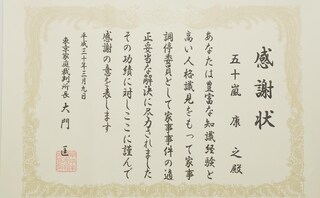 感謝状
五十嵐 康之 殿
あなたは豊富な知識経験と
高い人格識見をもって家事
調停委員として家事事件の適
正妥当な解決に尽力されました
その功績に対しここに謹んで
感謝の意を表します
平成三十年三月九日
東京家庭裁判所長 大門 匡